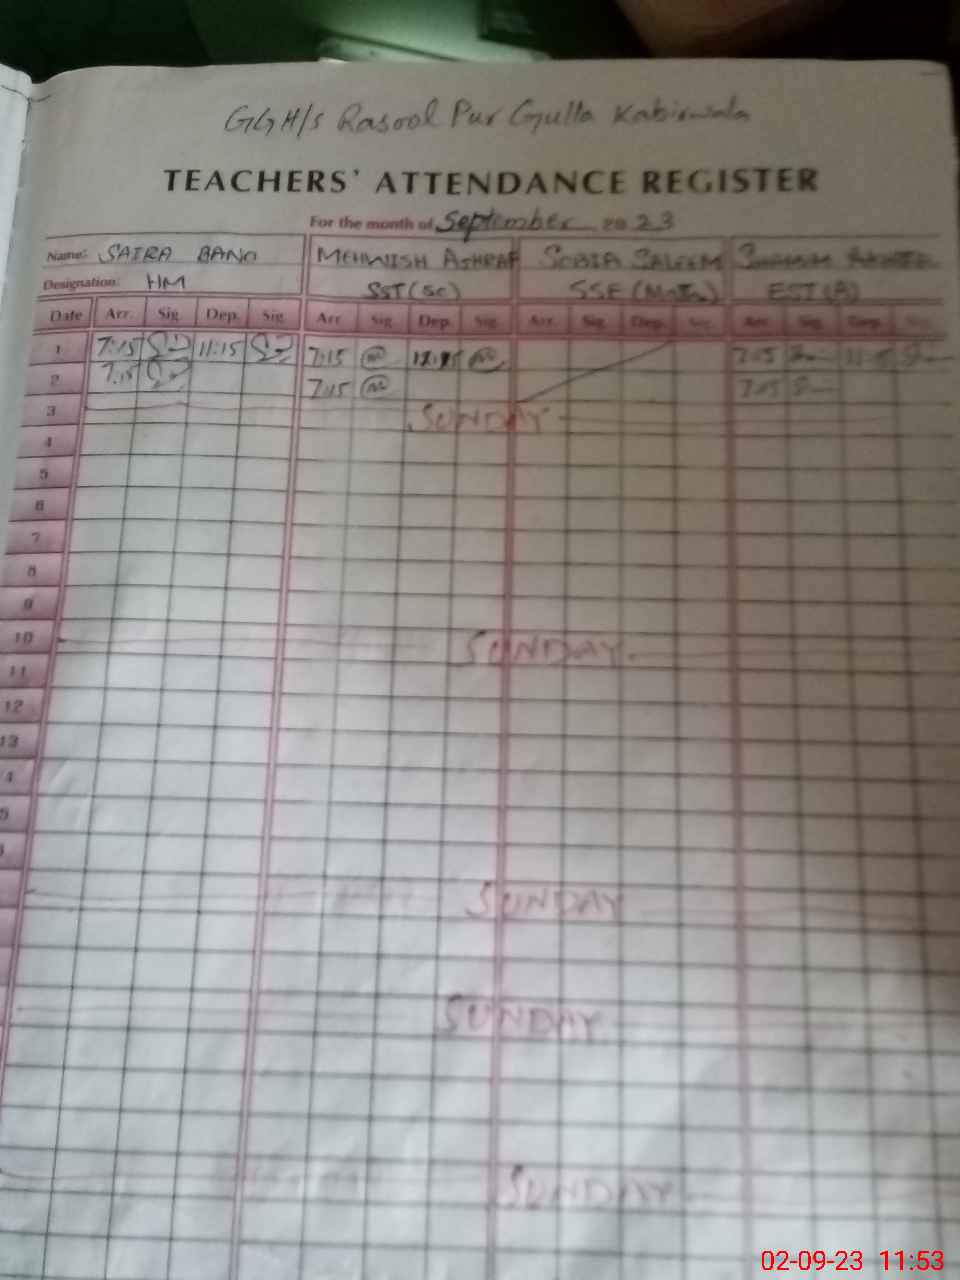 GGH/s Rasool Pur Gulla Kabirwala
TEACHERS' ATTENDANCE REGISTER
For the month of September 2023
Name: SAIRA BANO MEHWISH ASHRAF SOBIA SALEEM
Designation: HM SST(Sc) EST(A)
Date Arr. Sig. Dep. Sig. Arr. Sig. Dep. Sig. Arr. Sig. Dep. Sig. Arr. Sig. Dep. Sig.
1 7:15 11:15 7:15 7:15
2 7:15 7:15 7:15
3 SUNDAY
4
5
6
7
8
9
10 SUNDAY.
11
12
13
4
5
SUNDAY
SUNDAY
SUNDAY
02-09-23 11:53